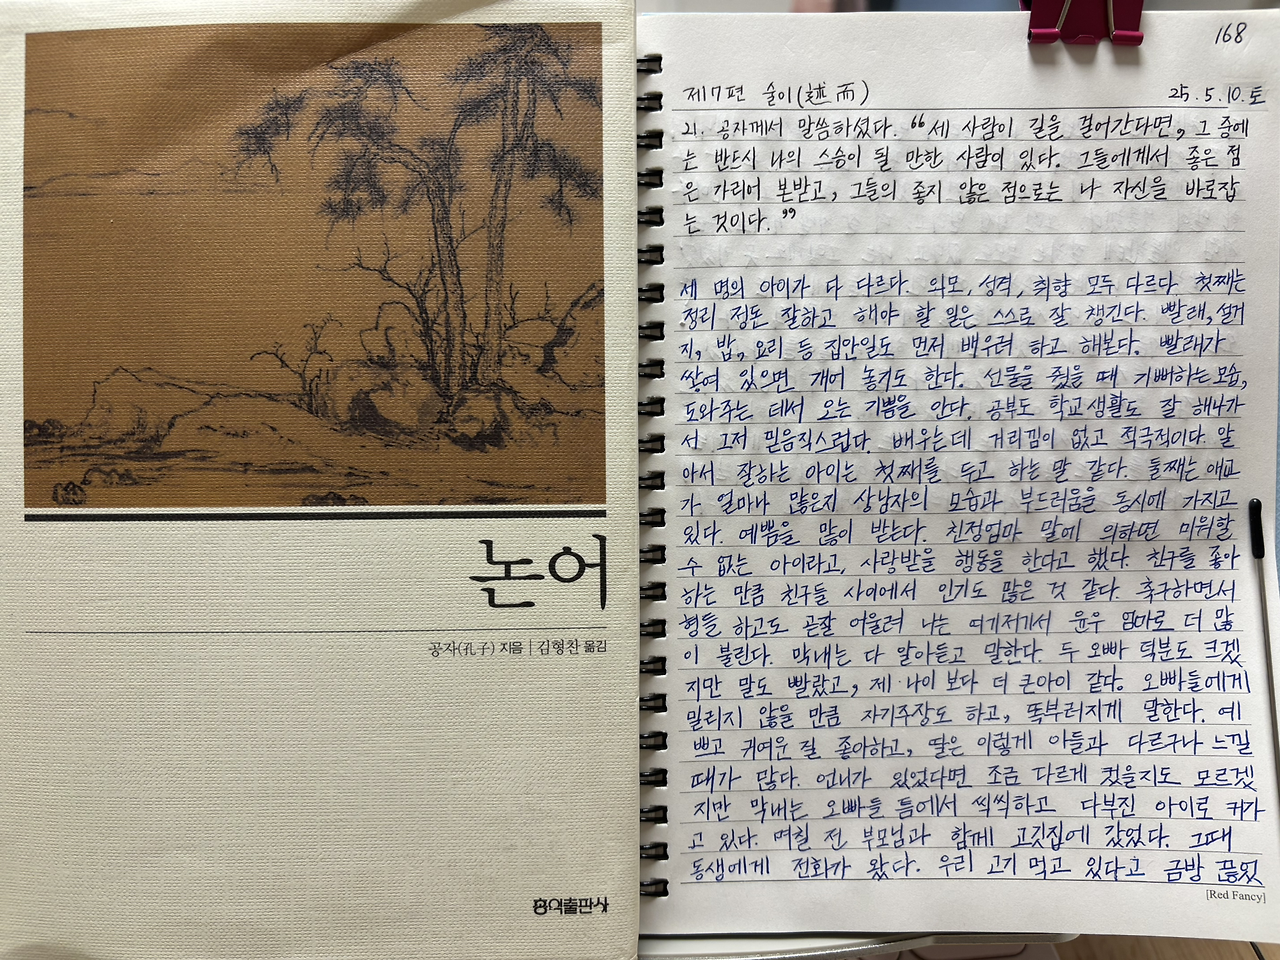 논어
공자(孔子) 지음 | 김형찬 옮김
홍익출판사
168
제17편 술이(述而)
25.5.10.토
21. 공자께서 말씀하셨다. “세 사람이 길을 걸어간다면, 그 중에
는 반드시 나의 스승이 될 만한 사람이 있다. 그들에게서 좋은 점
은 가리어 본받고, 그들의 좋지 않은 점으로는 나 자신을 바로잡
는 것이다.”
세 명의 아이가 다 다르다. 외모, 성격, 취향 모두 다르다. 첫째는
정리 정돈 잘하고 해야 할 일은 스스로 잘 챙긴다. 빨래, 설거
지, 밥, 요리 등 집안일도 먼저 배우려 하고 해본다. 빨래가
쌓여 있으면 개어 놓기도 한다. 선물을 줬을 때 기뻐하는 모습,
도와주는 데서 오는 기쁨을 안다. 공부도 학교생활도 잘 해나가
서 그저 믿음직스럽다. 배우는데 거리낌이 없고 적극적이다. 알
아서 잘하는 아이는 첫째를 두고 하는 말 같다. 둘째는 애교
가 얼마나 많은지 상남자의 모습과 부드러움을 동시에 가지고
있다. 예쁨을 많이 받는다. 친정엄마 말에 의하면 미워할
수 없는 아이라고, 사랑받을 행동을 한다고 했다. 친구를 좋아
하는 만큼 친구들 사이에서 인기도 많은 것 같다. 축구하면서
형들 하고도 곧잘 어울려 나는 여기저기서 윤우 엄마로 더 많
이 불린다. 막내는 다 알아듣고 말한다. 두 오빠 덕분도 크겠
지만 말도 빨랐고, 제 나이 보다 더 큰아이 같다. 오빠들에게
밀리지 않을 만큼 자기주장도 하고, 똑부러지게 말한다. 예
쁘고 귀여운 걸 좋아하고, 딸은 이렇게 아들과 다르구나 느낄
때가 많다. 언니가 있었다면 조금 다르게 컸을지도 모르겠
지만 막내는 오빠들 틈에서 씩씩하고 다부진 아이로 커가
고 있다. 며칠 전 부모님과 함께 고깃집에 갔었다. 그때
동생에게 전화가 왔다. 우리 고기 먹고 있다고 금방 끊었
[Red Fancy]